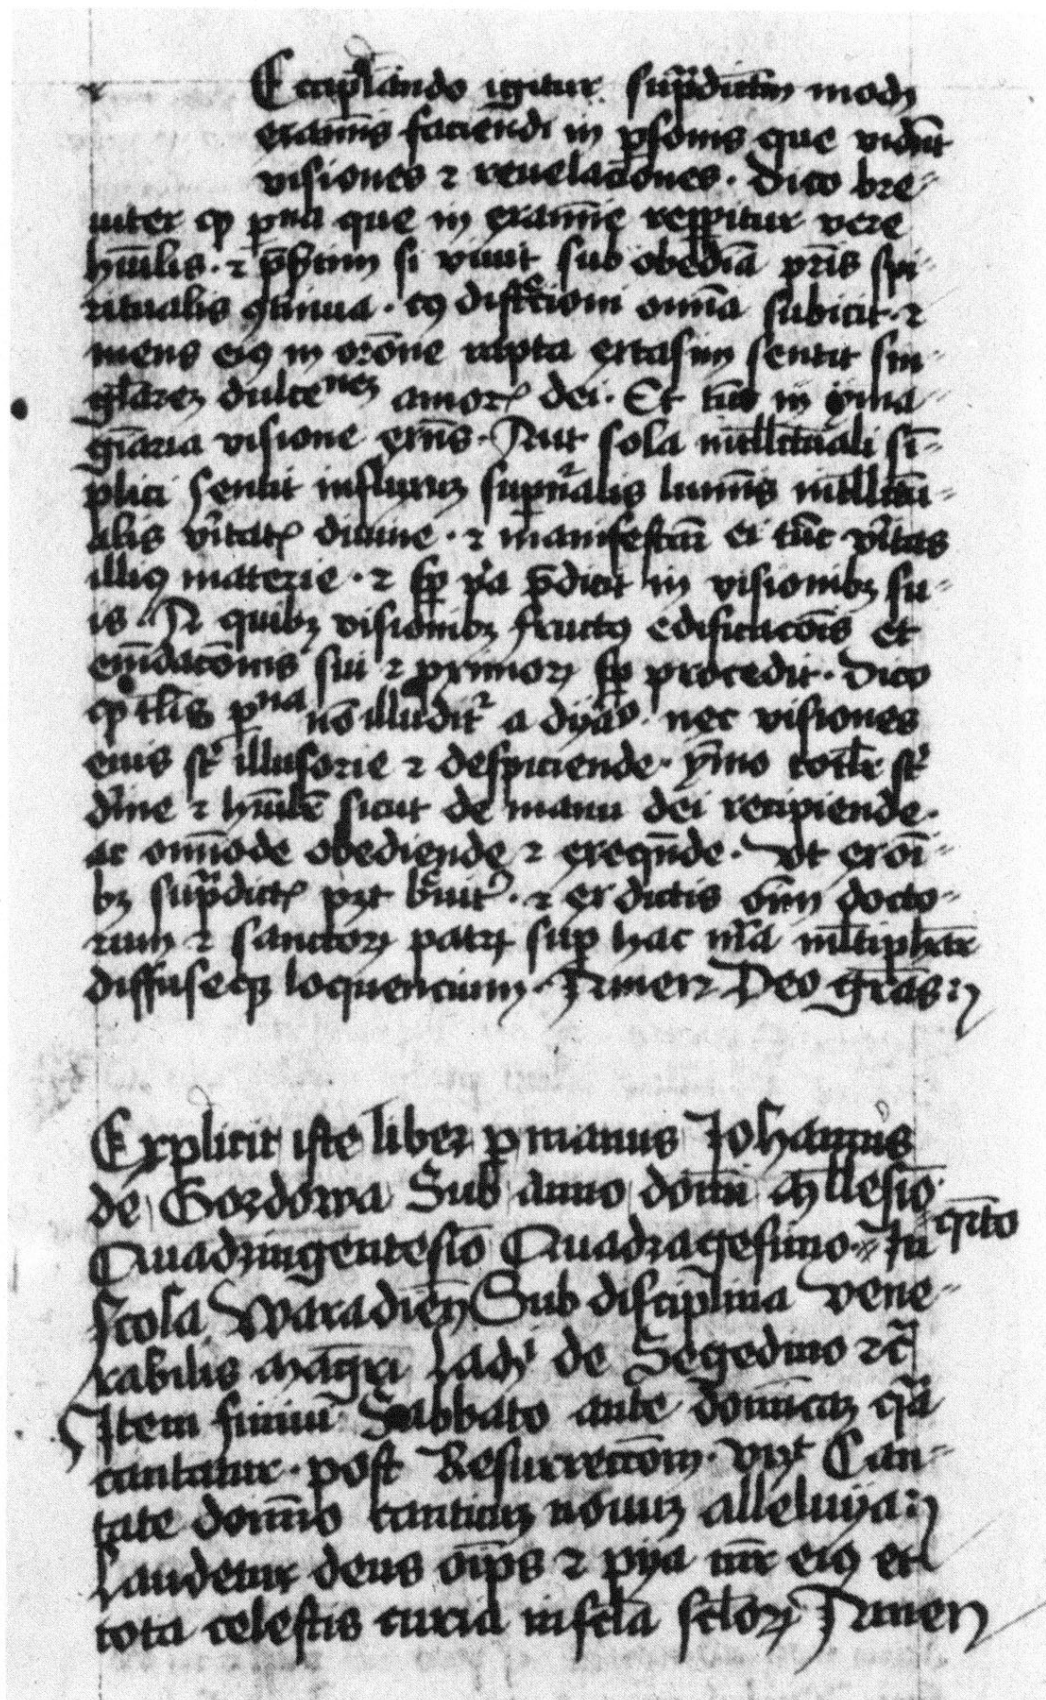 Eccipl̄ando igitur sup̄dictum modū
examīs faciendi in p̱sonis que vidēt
visiones ⁊ reuelac̄ones · dico bre-
uiter ꝙ p̱na que in examīe rep̱pitur vere
hūilis · ⁊ p̄sertim si viuit sub obediā pr̄is spi-
ritualis ꝯtinua · cuꝰ disc̄cioni omīa subicit · ⁊
mens eiꝰ in orōne rapta extasim sentit sin-
gl̄areꝫ dulcedineꝫ amorꝭ dei · Et tūc in yma-
gīaria visione exn̄s · Aut sola intll̄ctuali sī-
plici sentit influxuꝫ sup̱nalis lumīs intll̄ctu-
alis v̄itatꝭ diuine · ⁊ manifestat̄ ei tūc v̄itas
illiꝰ materie · ⁊ sp̱ v̄a p̄dicit in visionibꝫ su-
is · A quibꝫ visionibꝫ fructꝰ edificac̄ois et
emēdac̄onis sui ⁊ p̱ximoꝝ sp̱ procedit · dico
ꝙ tl̄is p̱na nō illudit᷑ a dyab̄o · nec visiones
eius st̄ illusorie ⁊ despiciende · ymo totl̄r st̄
diuīe ⁊ hūilit̄ sicut de manu dei recipiende ·
ac om̄inode obediende ⁊ exeqūde · Vt ex oī-
bꝫ sup̄dictꝭ pꝫt b̄uit᷑ · ⁊ ex dictis oīm docto-
rum ⁊ sanctoꝝ patꝝ sup̱ hac mā ml̄tiphar̄
diffuseqꝫ loquencium · Amen Deo grās ⁊c̄
Explicit iste liber p̱ manus Johannis
de Gordowa Sub anno domī Mll̄esīo
Quadringentesīo Quadragesimo · qr̄to In
scola Waradien̄ Sub discipl̄ina Vene-
rabilis Magr̄i Lad̄i de Segedino ⁊c̄
Item finiui Sabbato ante domīcaꝫ q̄a
cantatur · post Resurrecc̄om · vꝫ Can-
tate domīno canticuꝫ nouuꝫ alleluya ⁊c̄
Laudetur deus oīps ⁊ pya mr̄ eiꝰ et
tota celestis curia in sc̄la sc̄loꝝ Amen